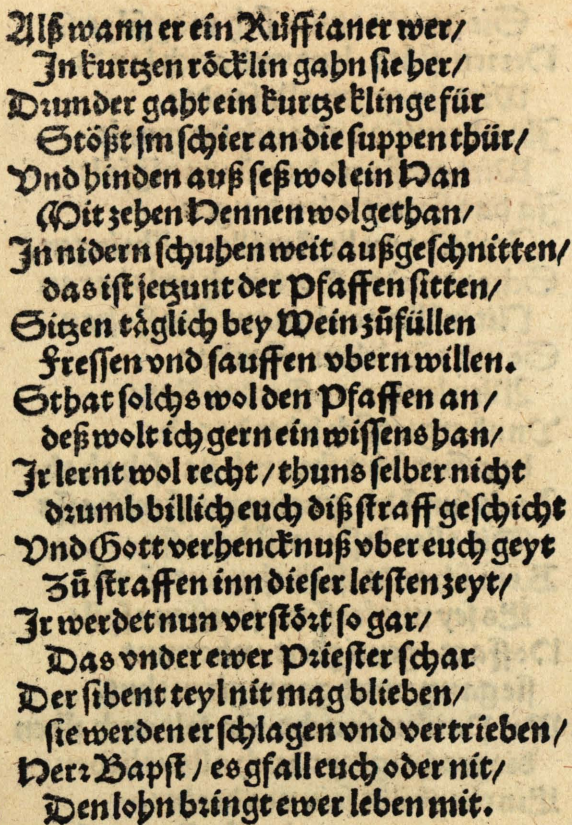 Alß wann er ein Rüffianer wer/
In kurtzen röcklin gahn sie her/
Drunder gaht ein kurtze klinge für
Stößt jm schier an die suppen thür/
Vnd hinden auß seß wol ein Han
Mit zehen Hennen wolgethan/
In nidern schuhen weit außgeschnitten/
das ist jetzunt der Pfaffen sitten/
Sitzen täglich bey Wein zůfüllen
Fressen vnd sauffen vbern willen.
Sthat solchs wol den Pfaffen an/
deß wolt ich gern ein wissens han/
Ir lernt wol recht/thuns selber nicht
drumb billich euch diß straff geschicht
Vnd Gott verhencknuß vber euch geyt
Zů straffen inn dieser letsten zeyt/
Ir werdet nun verstört so gar/
Das vnder ewer Priester schar
Der sibent teyl nit mag blieben/
sie werden erschlagen vnd vertrieben/
Herr Bapst/es gfall euch oder nit/
Den lohn bringt ewer leben mit.